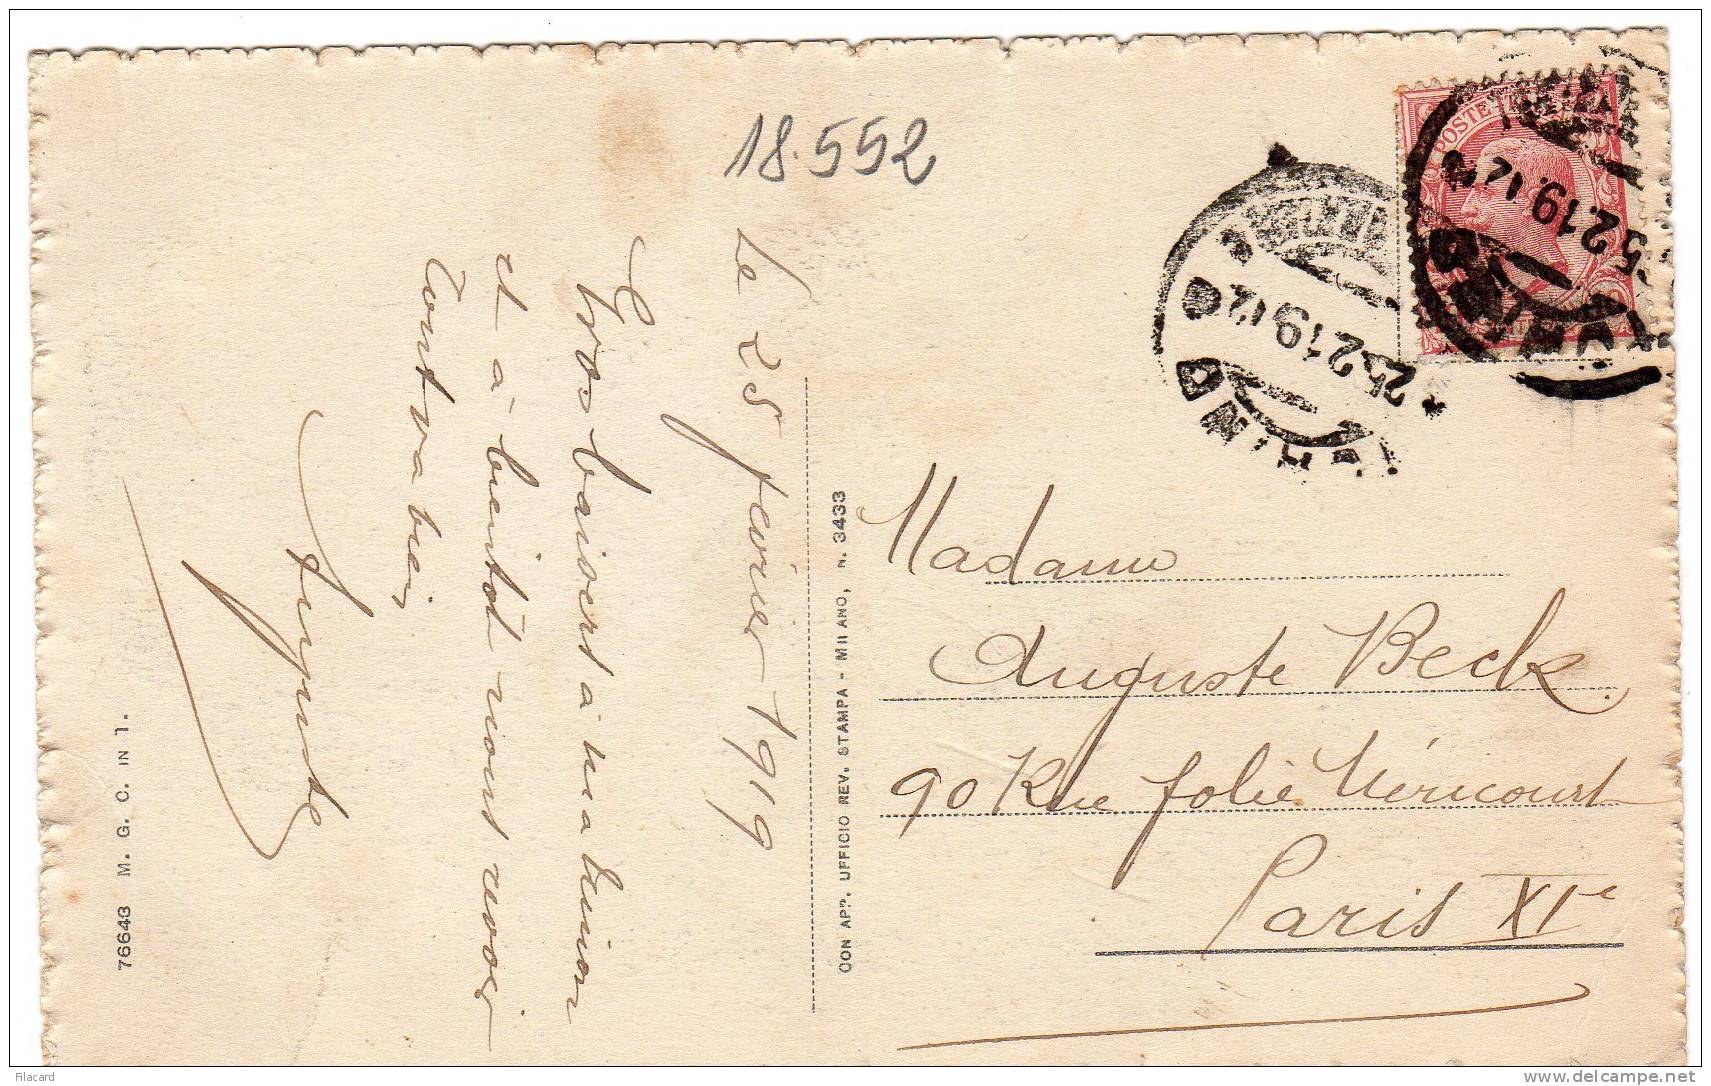 18.552
Le 25 fevrier 1919
Gros baisers à ma
et à bientôt
Tout va bien
Auguste
76643 M. G. C. IN 1.
CON APP. UFFICIO REV. STAMPA - MILANO, N. 3433
POSTE
25.2.19.12
TORINO
25.2.19.12
Madame
Auguste Beck.
90 Rue folie Méricourt
Paris XIe
Filacard
www.delcampe.net